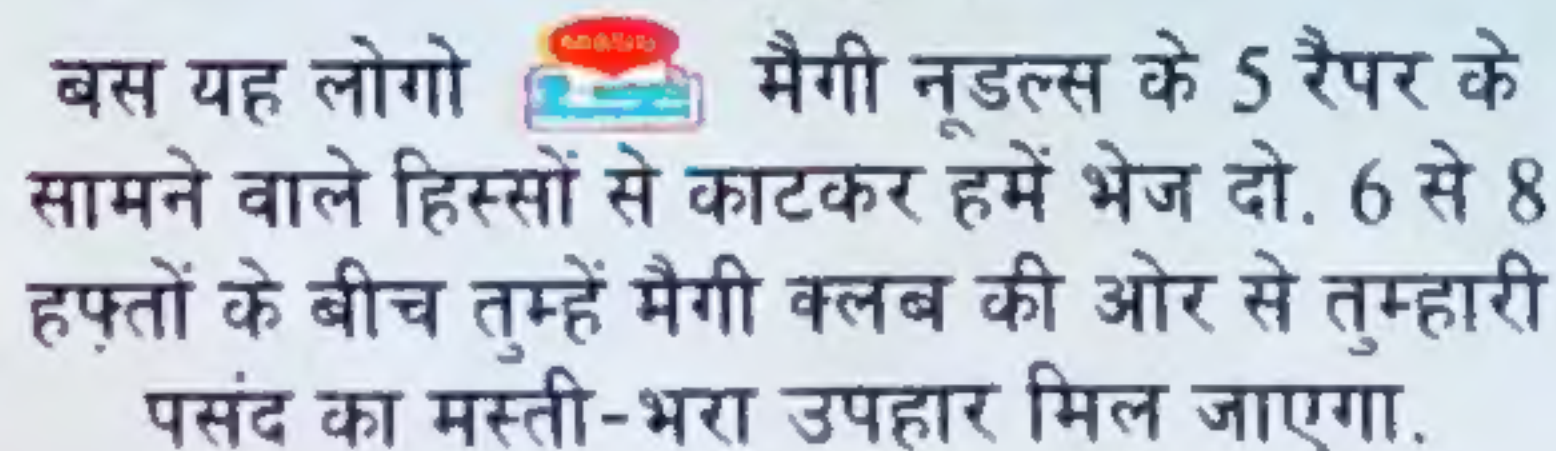 बस यह लोगो मैगी नूडल्स के 5 रैपर के
सामने वाले हिस्सों से काटकर हमें भेज दो. 6 से 8
हफ़्तों के बीच तुम्हें मैगी क्लब की ओर से तुम्हारी
पसंद का मस्ती-भरा उपहार मिल जाएगा.